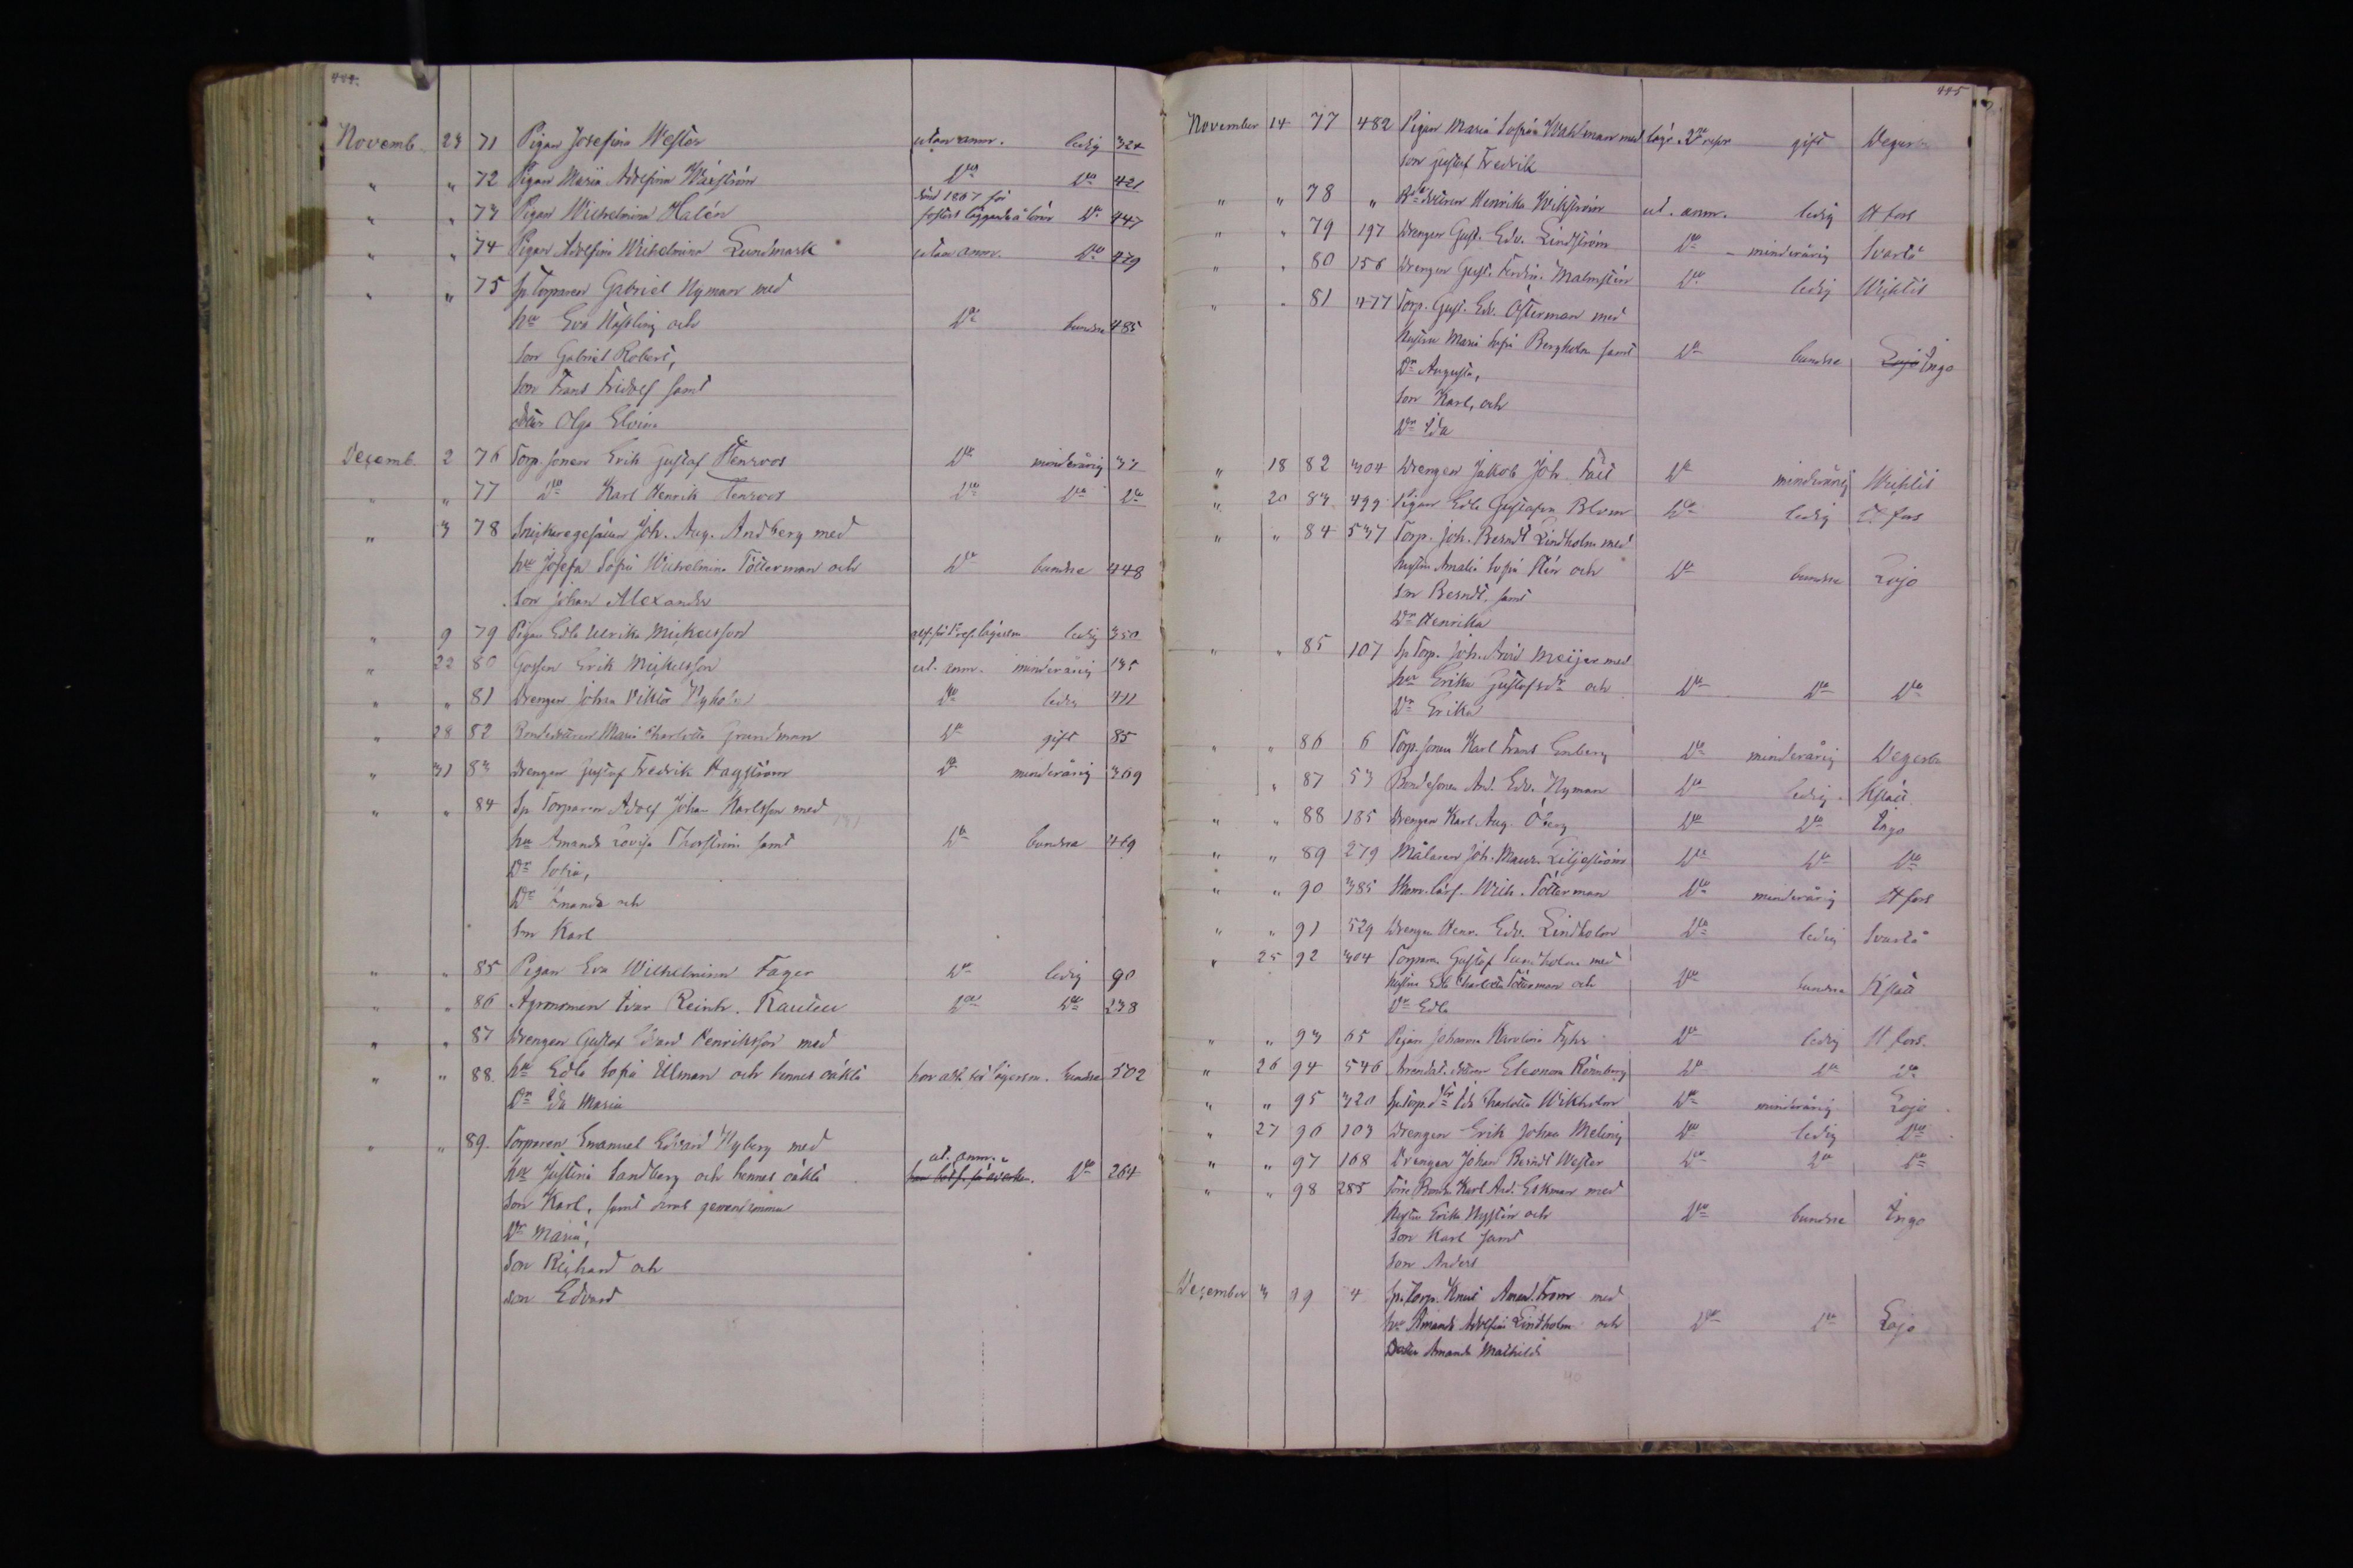 444.
Novemb. 23 71 Pigan Josefina Wester utan anm. ledig 324
" " 72 Pigan Maria Adolfina Waxström Do Do 421
" " 73 Pigan Wilhelmina Halén 1867 för fosters läggande å lönn Do 447
" " 74 Pigan Adolfina Wilhelmina Lundmark utan anm. Do 479
" " 75 Sp. Torparen Gabriel Nyman med
hu Eva Hässling och Do bundne 485
son Gabriel Robert,
son Frans Fridolf samt
Olga Elvira
Decemb. 2 76 Torp. sonen Erik Gustaf Stenroos Do minderårig 37
" " 77 Do Karl Henrik Stenroos Do Do Do
" 3 78 Snickaregesällen Joh. Aug. Andberg med
hu Josefa Sofia Wilhelmina Tötterman och Do bundne 448
son Johan Alexander
" 9 79 Pigan Edla Ulrika Mickelsson ledig 350
" 22 80 Gossen Erik Mickelsson ut. anm. minderårig 135
" " 81 Drengen Johan Viktor Nyholm Do ledig 411
" 28 82 Bondedottren Maria Charlotta Grundman Do gift 85
" 31 83 Drengen Gustaf Fredrik Hagström Do minderårig 369
" " 84 Sp. Torparen Adolf Johan Karlsson med
hu Amanda Lovisa Thorström samt Do bundne 469
Dr Sofia,
Dr Amanda och
son Karl
" " 85 Pigan Eva Wilhelmina Fager Do ledig 90
" " 86 Agronomen Ivar Reinh. Do Do 238
" " 87 Drengen Gustaf Edvard Henriksson med
" " 88. hu Edla Sofia Ullman och hennes oäkta bundne 502
Dr Ida Maria
" " 89. Torparen Emanuel Edvard Nyberg med
hu Justina Sandberg och hennes oäkta ut. anm. Do 264
son Karl, samt deras gemensamma
Dr Maria,
son Richard och
son Edvard
445
November 14 77 482 Pigan Maria Sofia Wahlman med gift Degerb.
son Gustaf Fredrik
" " 78 " Henrika Wikström ut. anm. ledig H fors
" " 79 197 Drengen Gust. Edv. Lindström Do minderårig Svartå
" " 80 156 Drengen Gust. Ferdin. Malmstén Do ledig Wichtis
" " 81 477 Torp. Gust. Edv. Österman med
hustru Maria Sofia Bergholm samt Do bundne Lojo Ingo
Dr Augusta,
son Karl, och
Dr Ida
" 18 82 304 Drengen Jakob Joh. Do minderårig Wichtis
" 20 83 499 Pigan Edla Gustafva Blom Do ledig H. fors
" " 84 537 Torp. Joh. Berndt Lindholm med
hustru Amalia Sofia och Do bundne Lojo
son Berndt, samt
Dr Henrika
" " 85 107 Sp. Torp. Joh. Arvid Meijer med
hu Erika Gustafsdr och Do Do Do
Dr Erika
" " 86 6 Torp. sonen Karl Frans Enberg Do minderårig Degerb.
" 87 53 Bondesonen And. Edv. Nyman Do ledig Kslätt
" " 88 185 Drengen Karl Aug. Öberg Do Do Ingo
" " 89 279 Målaren Joh. Maur. Liljeström Do Do Do
" " 90 385 Wilh. Tötterman Do minderårig H fors
" " 91 529 Drengen Henr. Edv. Lindholm Do ledig Svartå
" 25 92 304 Torparen Gustaf med
hustru Edla Charlotta Tötterman och Do bundne Kslätt
Dr Edla
" " 93 65 Pigan Johanna Karolina Do ledig H fors.
" 26 94 546 Eleonora Rönnberg Do Do Do
" " 95 320 Sp. Torp. dr Ida Charlotta Wikholm Do minderårig Lojo
" 27 96 103 Drengen Erik Johan Meling Do ledig Do
" " 97 168 Drengen Johan Berndt Wester Do Do Do
" " 98 285 Karl And. Eskman med
hustru Erika Nystén och Do bundne Ingo
son Karl samt
son Anders
December 3 99 4 Sp. Torp. Knut Amand. From med
hu Amanda Adolfina Lindholm och Do Do Lojo
Dotter Amanda Mathilda